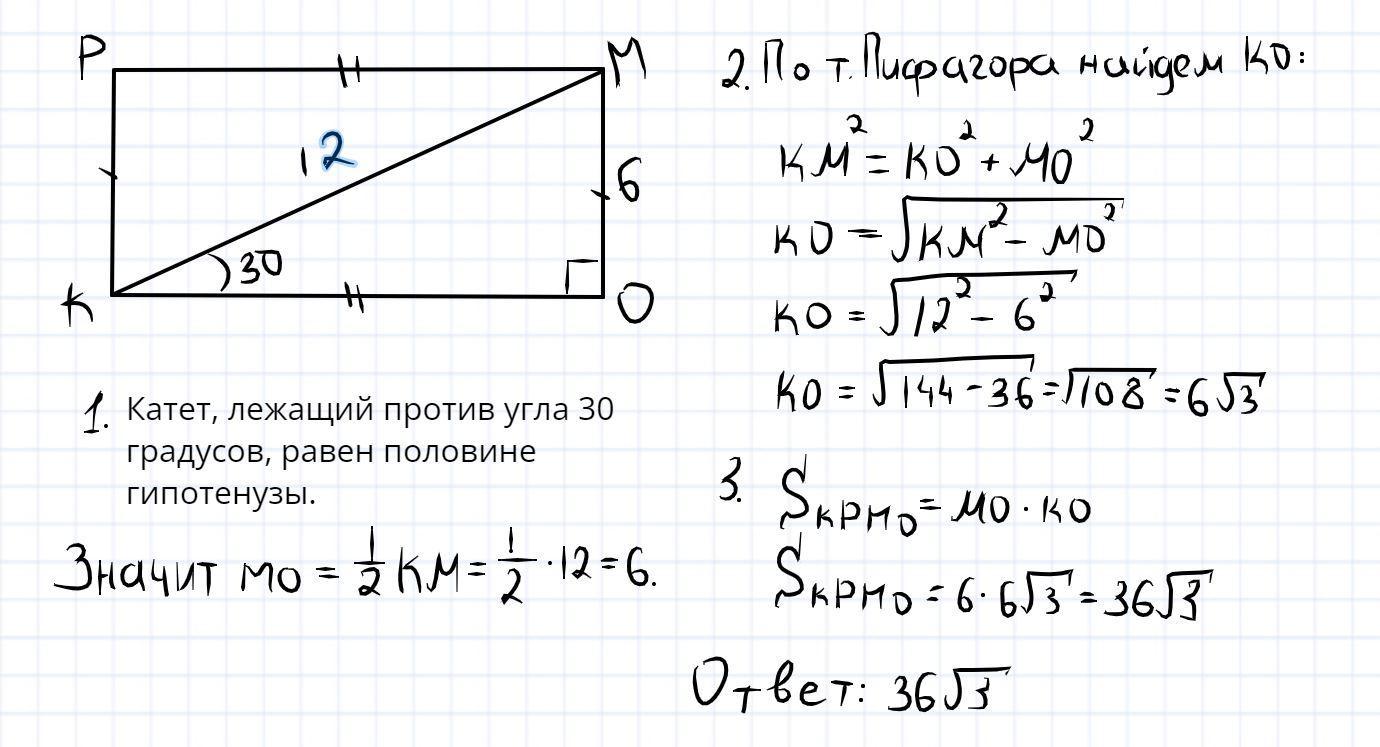 P
M
12
6
30
K
O
1. Катет, лежащий против угла 30
градусов, равен половине
гипотенузы.
Значит MO = 1/2 KM = 1/2 · 12 = 6.
2. По т. Пифагора найдем KO:
KM² = KO² + MO²
KO = √(KM² - MO²)
KO = √(12² - 6²)
KO = √(144 - 36) = √108 = 6√3
3. S_KPMO = MO · KO
S_KPMO = 6 · 6√3 = 36√3
Ответ: 36√3